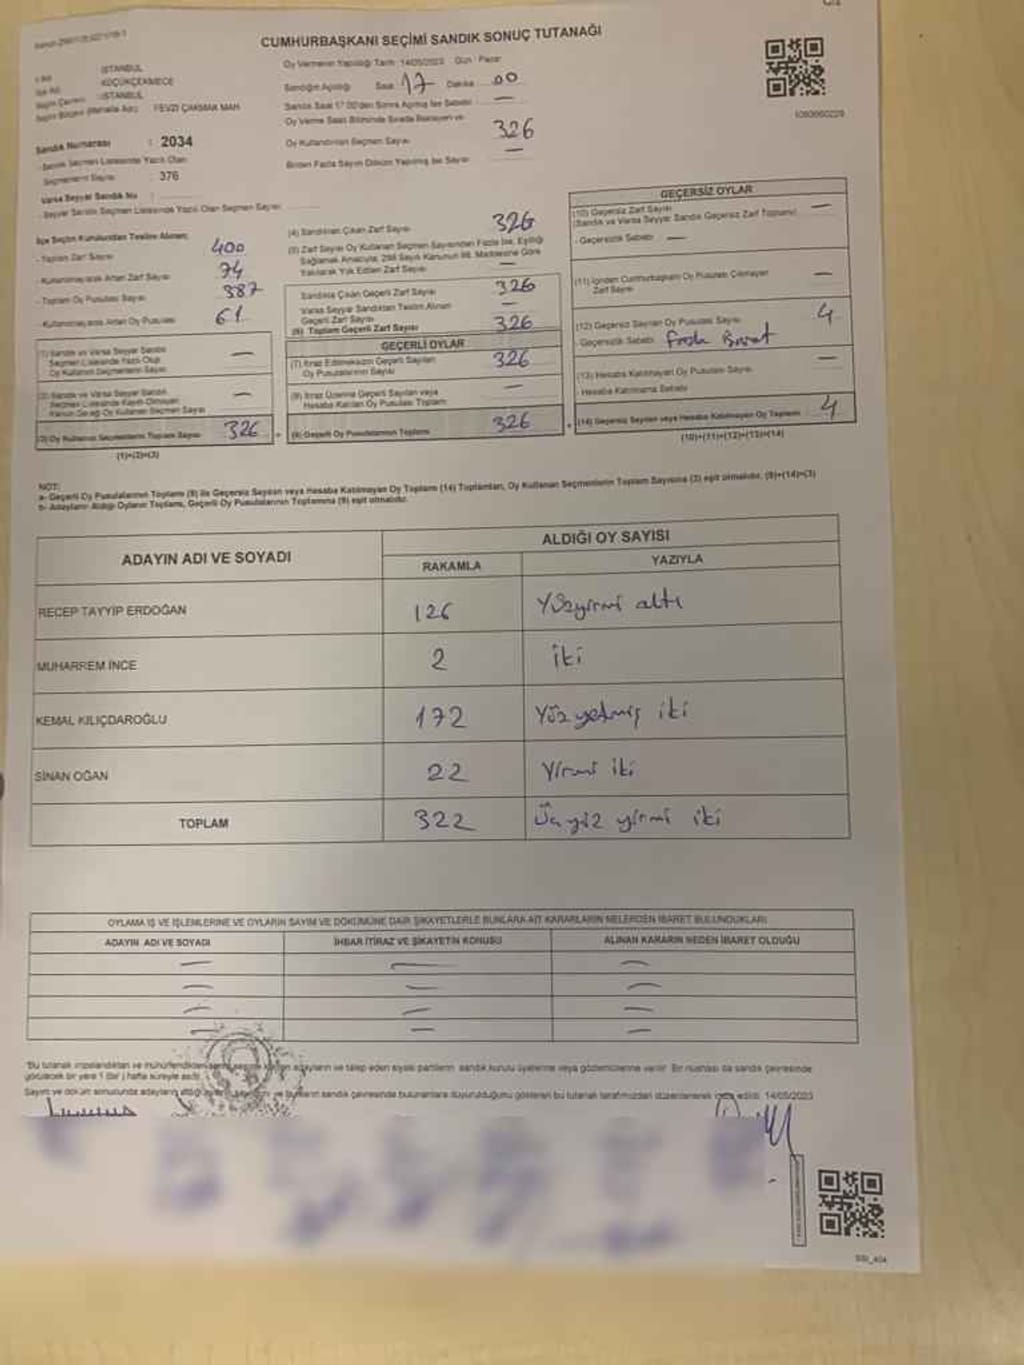 CUMHURBAŞKANI SEÇİMİ SANDIK SONUÇ TUTANAĞI
İSTANBUL
KÜÇÜKÇEKMECE
İSTANBUL
FEVZİ ÇAKMAK MAH
Oy Vermenin Yapıldığı Tarih: 14/05/2023 Gün : Pazar
Sandığın Açıldığı Saat 17 Dakika 00
Sandık Saat 17:00'den Sonra Açılmış İse Sebebi : —
Oy Verme Saati Bitiminde Sırada Bekleyen ve
Oy Kullandırılan Seçmen Sayısı 326
Birden Fazla Sayım Döküm Yapılmış İse Sayısı —
1093660229
Sandık Numarası : 2034
Sandık Seçmen Listesinde Yazılı Olan
Seçmenlerin Sayısı : 376
Varsa Seyyar Sandık No :
Seyyar Sandık Seçmen Listesinde Yazılı Olan Seçmen Sayısı
İlçe Seçim Kurulundan Teslim Alınan;
- Toplam Zarf Sayısı 400
- Kullanılmayarak Artan Zarf Sayısı 74
- Toplam Oy Pusulası Sayısı 387
- Kullanılmayarak Artan Oy Pusulası 61
(1) Sandık ve Varsa Seyyar Sandık
Seçmen Listesinde Yazılı Olup
Oy Kullanan Seçmenlerin Sayısı —
(2) Sandık ve Varsa Seyyar Sandık
Seçmen Listesinde Kayıtlı Olmayan
Kanun Gereği Oy Kullanan Seçmen Sayısı —
(3) Oy Kullanan Seçmenlerin Toplam Sayısı 326
(1)+(2)=(3)
(4) Sandıktan Çıkan Zarf Sayısı 326
(5) Zarf Sayısı Oy Kullanan Seçmen Sayısından Fazla İse, Eşitliği
Sağlamak Amacıyla, 298 Sayılı Kanunun 98. Maddesine Göre
Yakılarak Yok Edilen Zarf Sayısı —
Sandıkta Çıkan Geçerli Zarf Sayısı 326
Varsa Seyyar Sandıktan Teslim Alınan
Geçerli Zarf Sayısı —
(6) Toplam Geçerli Zarf Sayısı 326
GEÇERLİ OYLAR
(7) İtiraz Edilmeksizin Geçerli Sayılan
Oy Pusulalarının Sayısı 326
(8) İtiraz Üzerine Geçerli Sayılan veya
Hesaba Katılan Oy Pusulası Toplamı —
(9) Geçerli Oy Pusulalarının Toplamı 326
GEÇERSİZ OYLAR
(10) Geçersiz Zarf Sayısı
(Sandık ve Varsa Seyyar Sandık Geçersiz Zarf Toplamı) —
- Geçersizlik Sebebi —
(11) İçinden Cumhurbaşkanı Oy Pusulası Çıkmayan
Zarf Sayısı —
(12) Geçersiz Sayılan Oy Pusulası Sayısı 4
- Geçersizlik Sebebi
(13) Hesaba Katılmayan Oy Pusulası Sayısı —
- Hesaba Katılmama Sebebi
(14) Geçersiz Sayılan veya Hesaba Katılmayan Oy Toplamı 4
(10)+(11)+(12)+(13)=(14)
NOT:
a- Geçerli Oy Pusulalarının Toplamı (9) ile Geçersiz Sayılan veya Hesaba Katılmayan Oy Toplamı (14) Toplamları, Oy Kullanan Seçmenlerin Toplam Sayısına (3) eşit olmalıdır. (9)+(14)=(3)
b- Adayların Aldığı Oyların Toplamı, Geçerli Oy Pusulalarının Toplamına (9) eşit olmalıdır.
ADAYIN ADI VE SOYADI
ALDIĞI OY SAYISI
RAKAMLA YAZIYLA
RECEP TAYYİP ERDOĞAN 126 Yüzyirmi altı
MUHARREM İNCE 2 iki
KEMAL KILIÇDAROĞLU 172 Yüz yetmiş iki
SİNAN OĞAN 22 Yirmi iki
TOPLAM 322 Üçyüz yirmi iki
OYLAMA İŞ VE İŞLEMLERİNE VE OYLARIN SAYIM VE DÖKÜMÜNE DAİR ŞİKAYETLERLE BUNLARA AİT KARARLARIN NELERDEN İBARET BULUNDUKLARI
ADAYIN ADI VE SOYADI İHBAR İTİRAZ VE ŞİKAYETİN KONUSU ALINAN KARARIN NEDEN İBARET OLDUĞU
— — —
— — —
— — —
— — —
14/05/2023